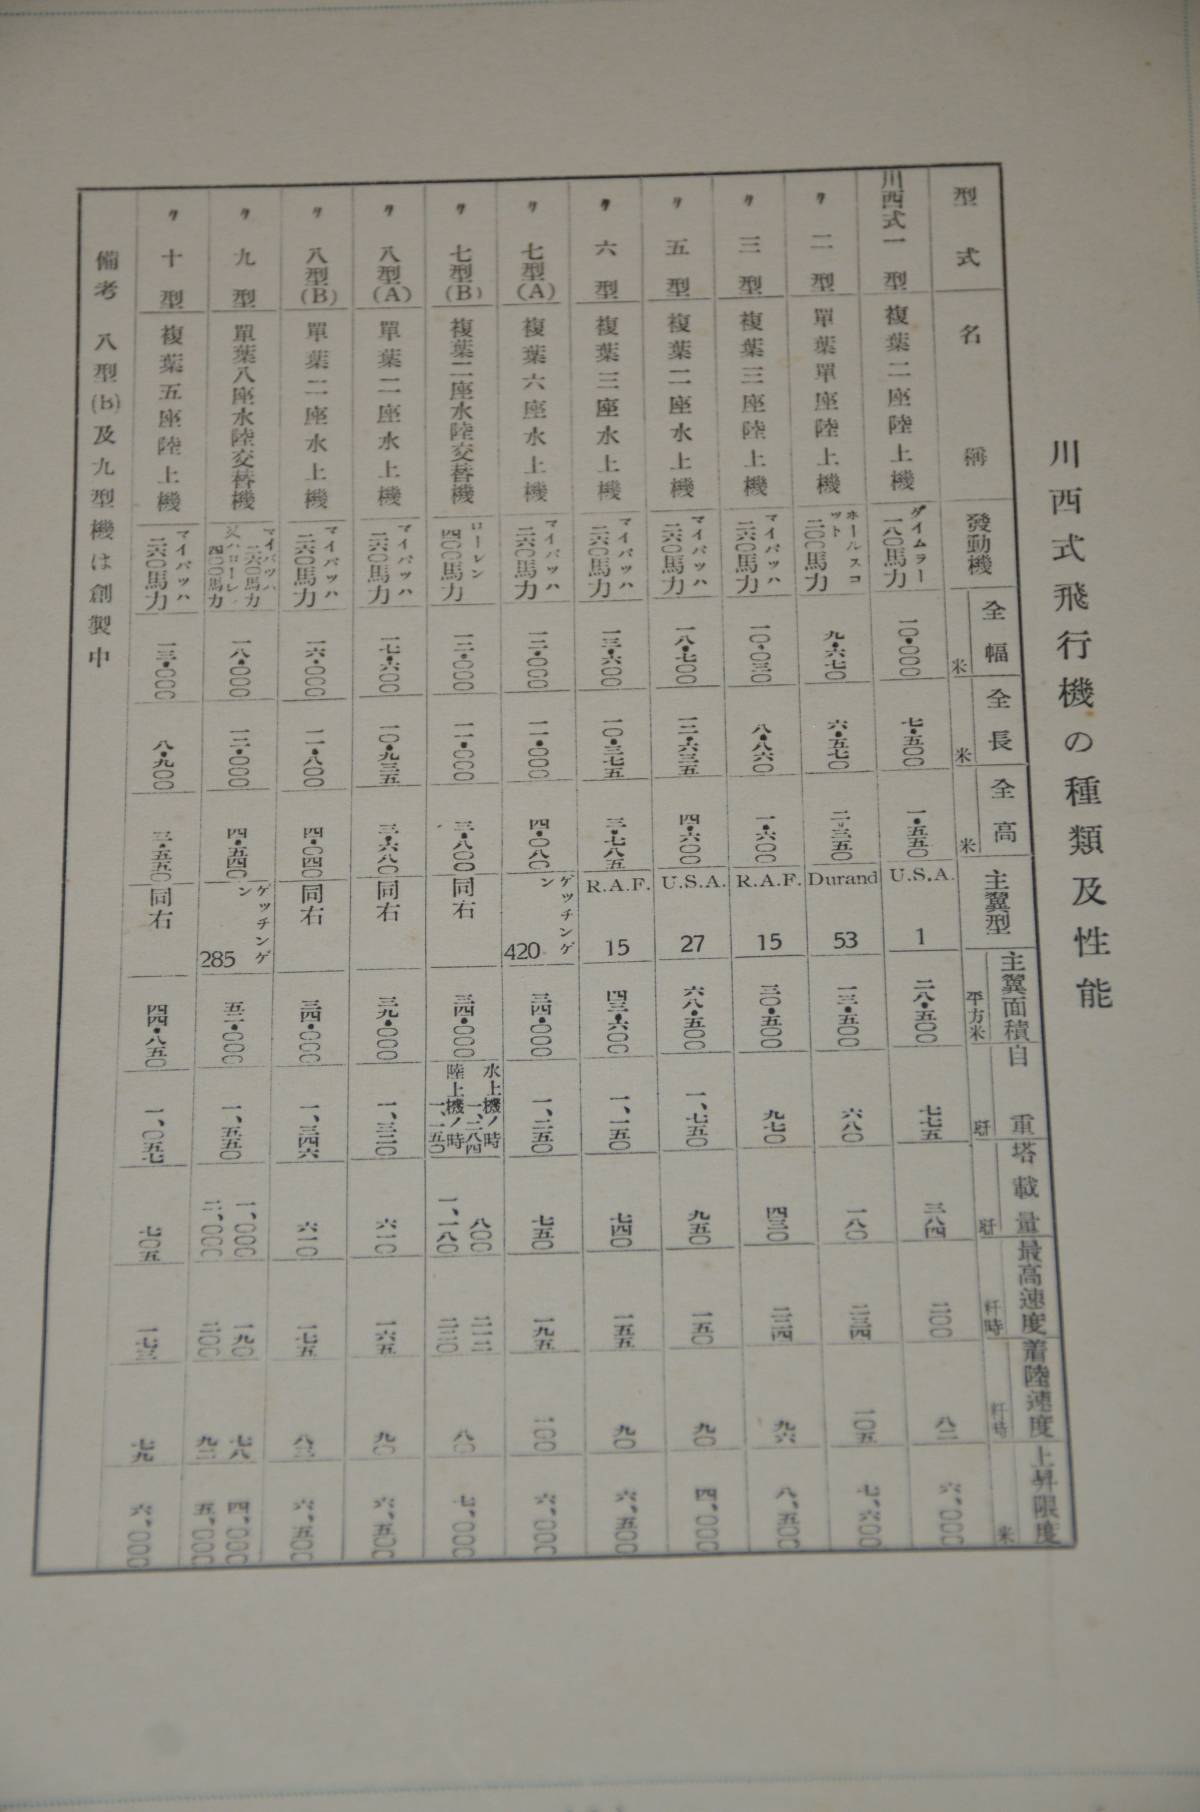 川西式飛行機の種類及性能
型式 名稱 發動機 全幅米 全長米 全高米 主翼型 主翼面積平方米 自重瓩 塔載量瓩 最高速度粁時 着陸速度粁時 上昇限度米
川西式一型 複葉二座陸上機 ダイムラー一八〇馬力 一〇・〇〇〇 七・五〇〇 一・五五〇 U.S.A. 1 二八・五〇〇 七七五 三八四 二〇〇 八二 六、〇〇〇
〃二型 單葉單座陸上機 ホールスコット二〇〇馬力 九・六七〇 六・五七〇 二・三五〇 Durand 53 一三・五〇〇 六八〇 一八〇 二三四 一〇五 七、六〇〇
〃三型 複葉三座陸上機 マイバッハ二六〇馬力 一〇・〇三〇 八・八六〇 一・六〇〇 R.A.F. 15 三〇・五〇〇 九七〇 四三〇 二三四 九六 八、五〇〇
〃五型 複葉二座水上機 マイバッハ二六〇馬力 一八・七〇〇 一二・六三五 四・六〇〇 U.S.A. 27 六八・五〇〇 一、七五〇 九五〇 一五〇 九〇 四、〇〇〇
〃六型 複葉三座水上機 マイバッハ二六〇馬力 一三・六〇〇 一〇・三七五 三・七八五 R.A.F. 15 四三・六〇〇 一、一五〇 七四〇 一五五 九〇 六、五〇〇
〃七型(A) 複葉六座水上機 マイバッハ二六〇馬力 一二・〇〇〇 一一・〇〇〇 四・〇八〇 ゲッチンゲン 420 三四・〇〇〇 一、二五〇 七五〇 一九五 一〇〇 六、〇〇〇
〃七型(B) 複葉二座水陸交替機 ローレン四〇〇馬力 一二・〇〇〇 一一・〇〇〇 三・八〇〇 同右 三四・〇〇〇 水上機ノ時一、二八四 陸上機ノ時一、一五〇 八〇〇 一、一八〇 二一二 二二〇 八〇 七、〇〇〇
〃八型(A) 單葉二座水上機 マイバッハ二六〇馬力 一七・六〇〇 一〇・九三五 三・六八〇 同右 三九・〇〇〇 一、三二〇 六一〇 一六五 九〇 六、五〇〇
〃八型(B) 單葉二座水上機 マイバッハ二六〇馬力 一六・〇〇〇 一一・八〇〇 四・〇四〇 同右 三四・〇〇〇 一、三四六 六一〇 一七五 八三 六、五〇〇
〃九型 單葉八座水陸交替機 マイバッハ二六〇馬力 又ハローレン四〇〇馬力 一八・〇〇〇 一二・〇〇〇 四・五四〇 ゲッチンゲン 285 五二・〇〇〇 一、五五〇 一、〇〇〇 二、〇〇〇 一九〇 二〇〇 七八 九二 四、〇〇〇 五、〇〇〇
〃十型 複葉五座陸上機 マイバッハ二六〇馬力 一三・〇〇〇 八・九〇〇 三・五五〇 同右 四四・八五〇 一、〇五七 七〇五 一七三 七九 六、〇〇〇
備考 八型(b)及九型機は創製中